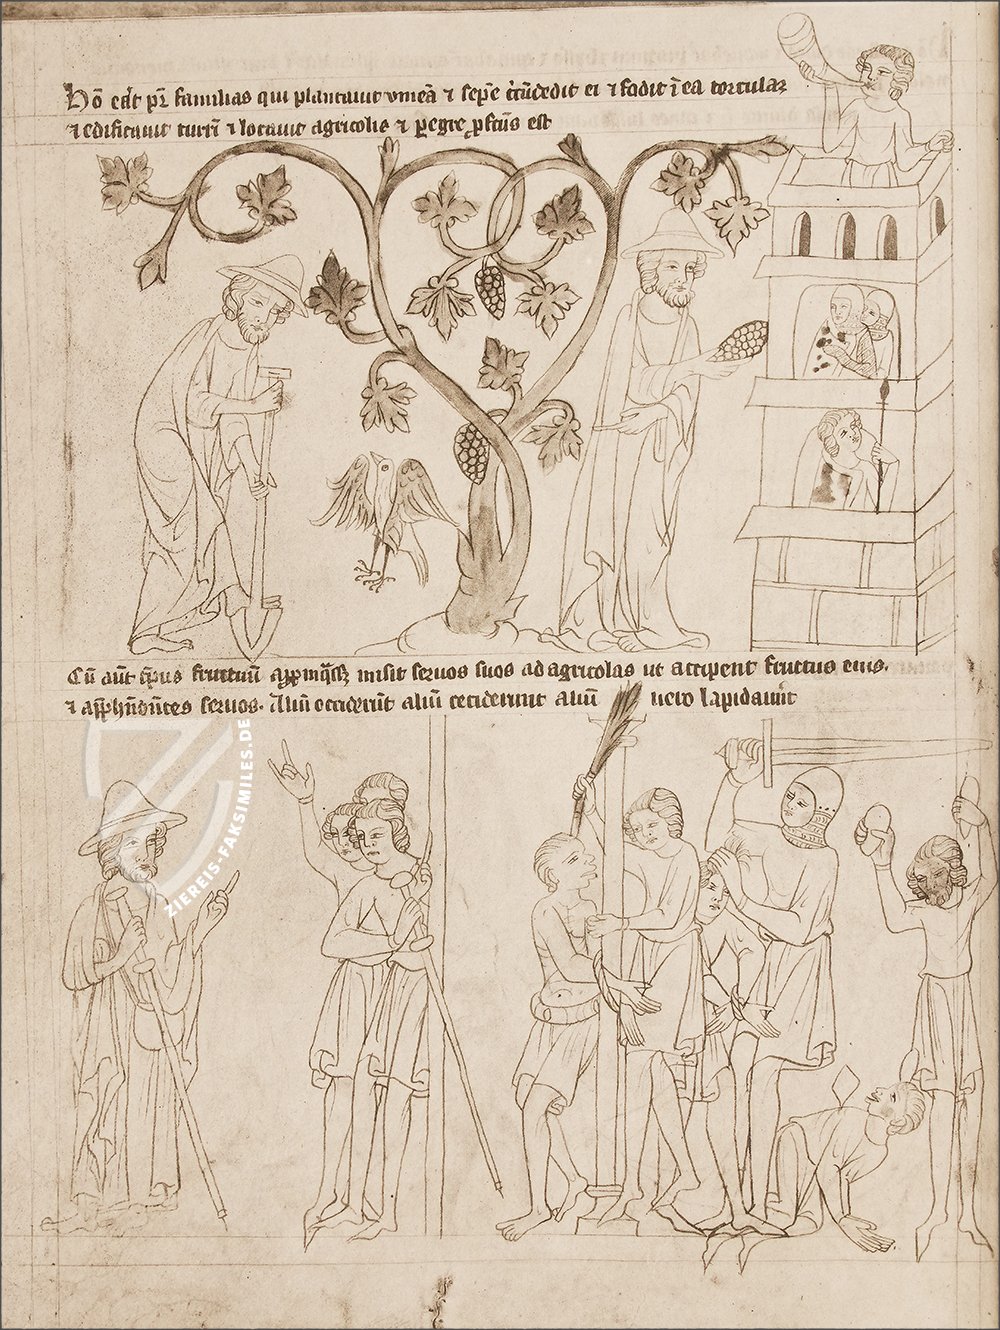 Hō erat pr̄ familias qui plantauit vineā ⁊ sepē c̄cūdedit ei ⁊ fodit ī ea torcular
⁊ edificauit turrī ⁊ locauit agricolis ⁊ pegre pfcūs est
Cū aūt tp̄us fructuū app̄inq̄ss̄ misit seruos suos ad agricolas ut accipent fructus eius.
⁊ app̄hn̄dn̄tes seruos. Aliū occider̄t aliū ceciderunt aliū uero lapidauer̄t
ZIEREIS-FAKSIMILES.DE